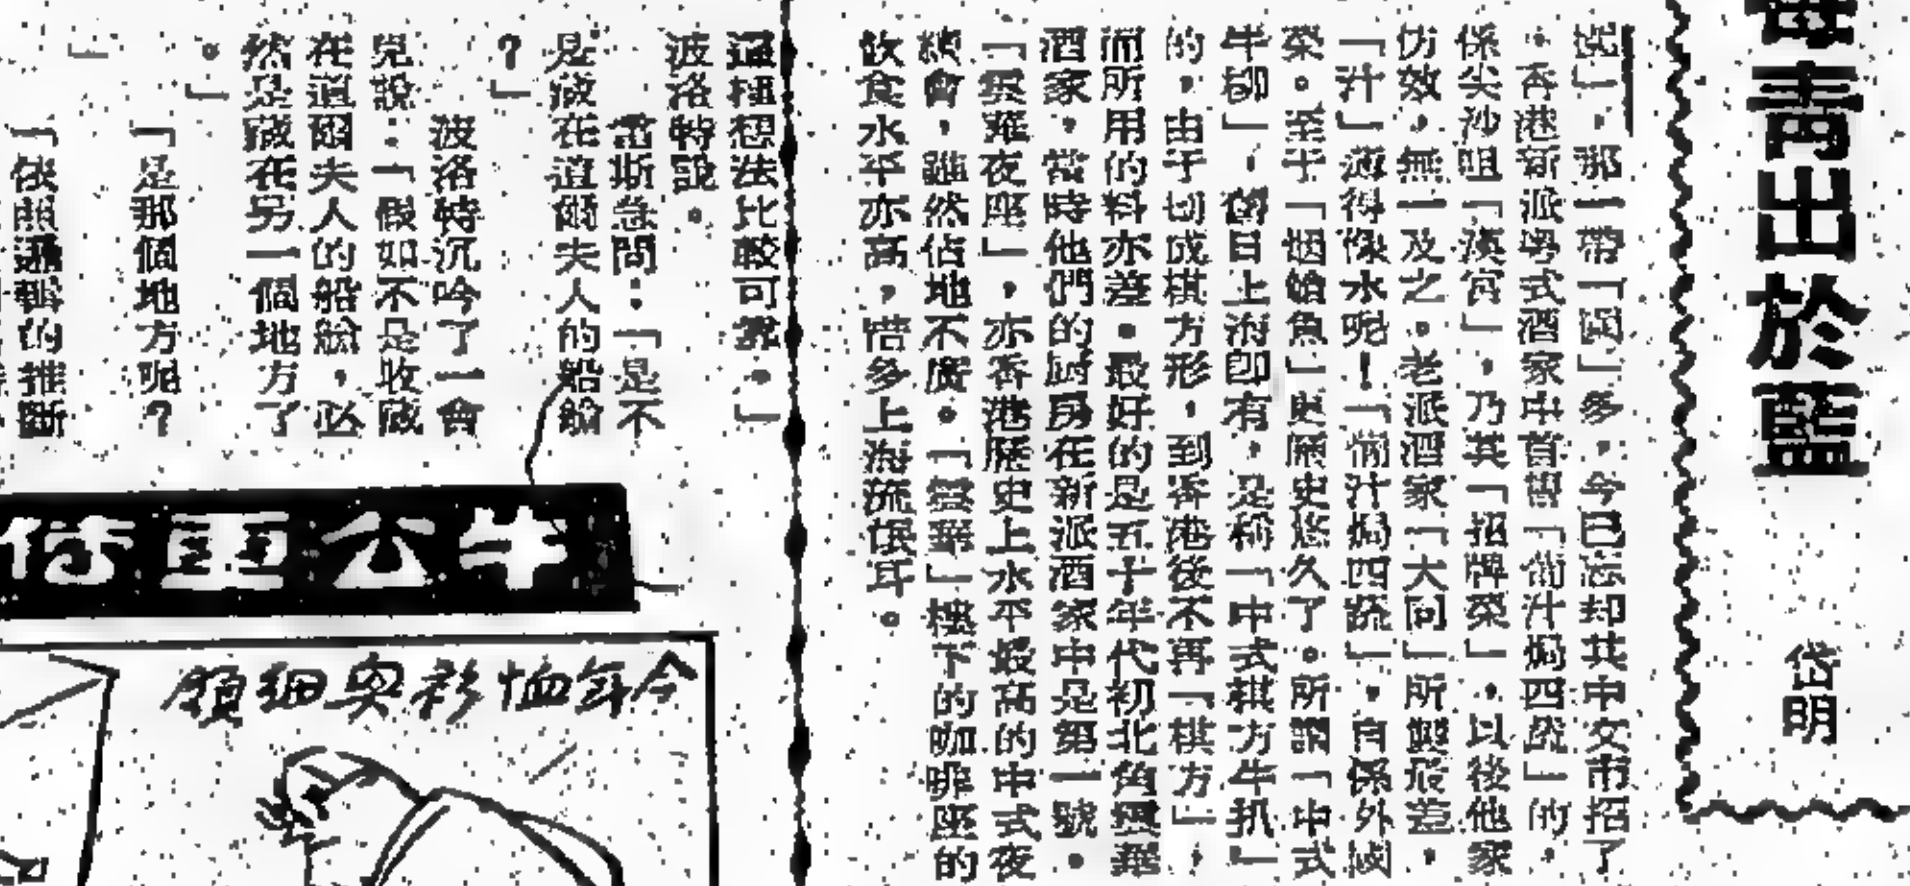 青出於藍
岱明
」，那一帶「」多，今已忘却其中文市招了
。香港新派粵式酒家中首創「葡汁焗四蔬」的，
係尖沙咀「漢宮」，乃其「招牌菜」，以後他家
仿效，無一及之。老派酒家「大同」所製最差，
「汁」薄得像水呢！「葡汁焗四蔬」，自係外國
菜。至于「烟鱠魚」更歷史悠久了。所謂「中式
牛柳」，舊日上海即有，是稱「中式棋方牛扒」
的，由于切成棋方形，到香港後不再「棋方」，
而所用的料亦差。最好的是五十年代初北角雲華
酒家，當時他們的廚房在新派酒家中是第一號。
「雲華夜座」，亦香港歷史上水平最高的中式夜
總會，雖然佔地不廣。「雲華」樓下的咖啡座的
飲食水平亦高，惜多上海流氓耳。
這種想法比較可靠。」
波洛特說。
雷斯急問：「是不
是藏在道爾夫人的船艙
？」
波洛特沉吟了一會
兒說：「假如不是收藏
在道爾夫人的船艙，必
然是藏在另一個地方了
。」
「是那個地方呢？
」
「依照邏輯的推斷
牛公更
今年恤衫奧細領